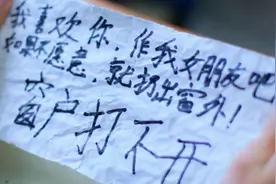 我喜欢你,作我女朋友吧
如果愿意,就扔出窗外!
窗户打不开